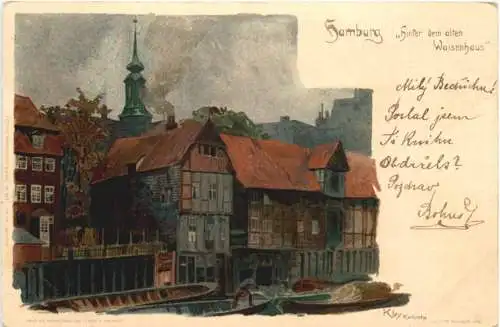 Hamburg „Hinter dem alten
Waisenhaus"
Milý Bedřichu!
Poslal jsem
Ti kvitu
Obdržels?
Pozdrav
Bohuš
Kley